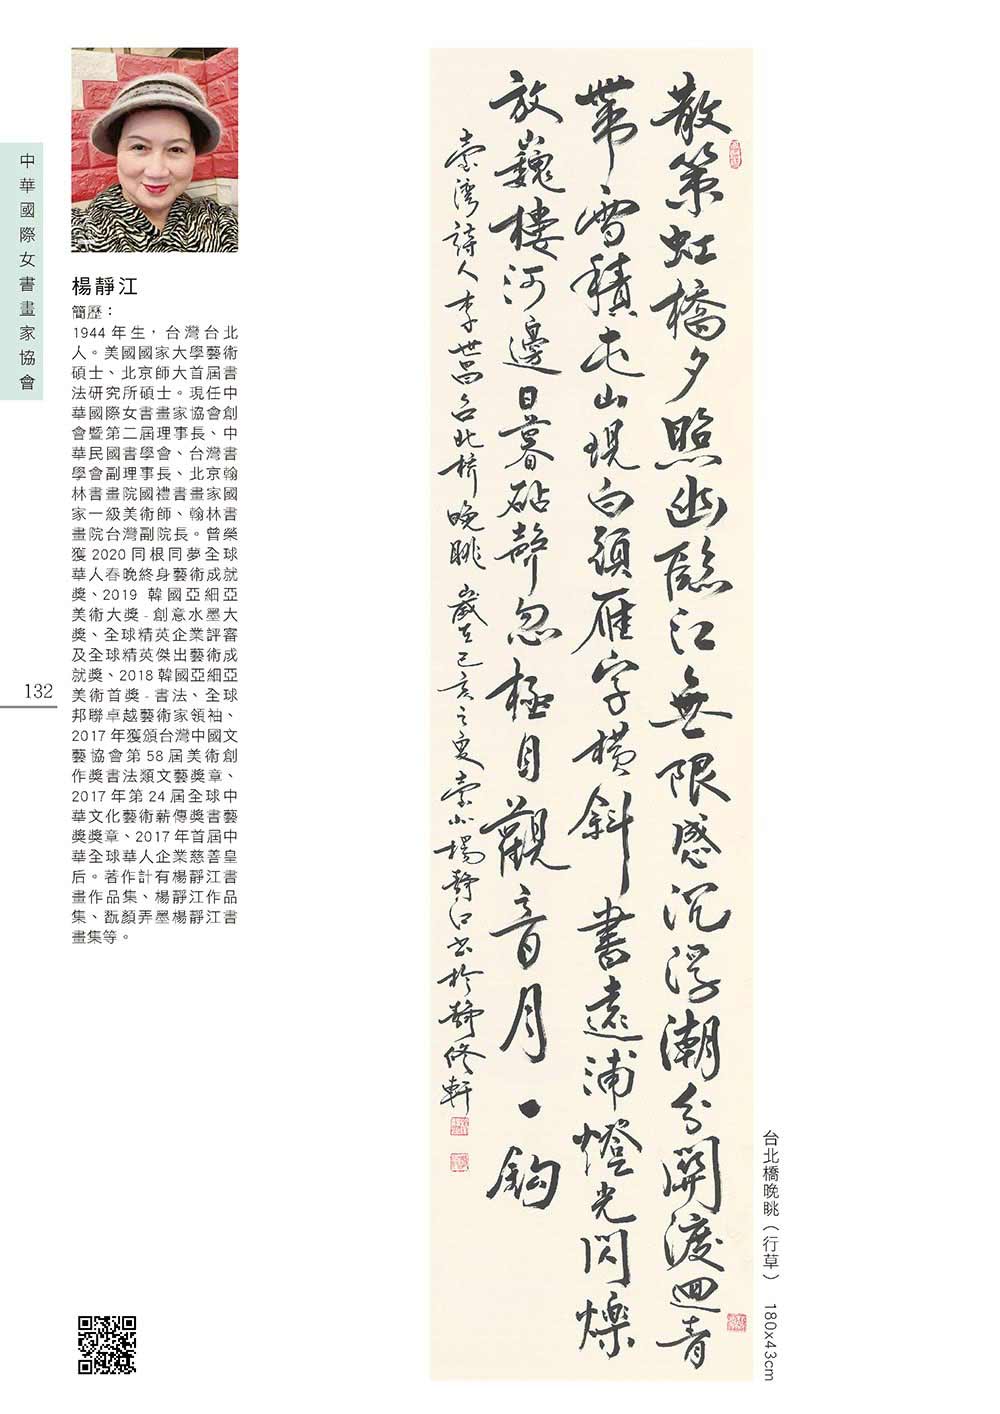 中華國際女書畫家協會
132
楊靜江
簡歷：
1944年生，台灣台北
人。美國國家大學藝術
碩士、北京師大首屆書
法研究所碩士。現任中
華國際女書畫家協會創
會暨第二屆理事長、中
華民國書學會、台灣書
學會副理事長、北京翰
林書畫院國禮書畫家國
家一級美術師、翰林書
畫院台灣副院長。曾榮
獲2020同根同夢全球
華人春晚終身藝術成就
獎、2019 韓國亞細亞
美術大獎-創意水墨大
獎、全球精英企業評審
及全球精英傑出藝術成
就獎、2018韓國亞細亞
美術首獎-書法、全球
邦聯卓越藝術家領袖、
2017年獲頒台灣中國文
藝協會第58屆美術創
作獎書法類文藝獎章、
2017年第24屆全球中
華文化藝術薪傳獎書藝
獎獎章、2017年首屆中
華全球華人企業慈善皇
后。著作計有楊靜江書
畫作品集、楊靜江作品
集、翫顏弄墨楊靜江書
畫集等。
散策虹橋夕照幽臨江無限感沉浮潮分關渡迴青
帶雪積屯山現白頭雁字橫斜書遠浦燈光閃爍
放巍樓河邊日暮砧聲忽極目觀音月一鈎
臺灣詩人李世昌台北橋晚眺 歲在己亥之夏臺北楊靜江書於靜修軒
台北橋晚眺（行草） 180x43cm